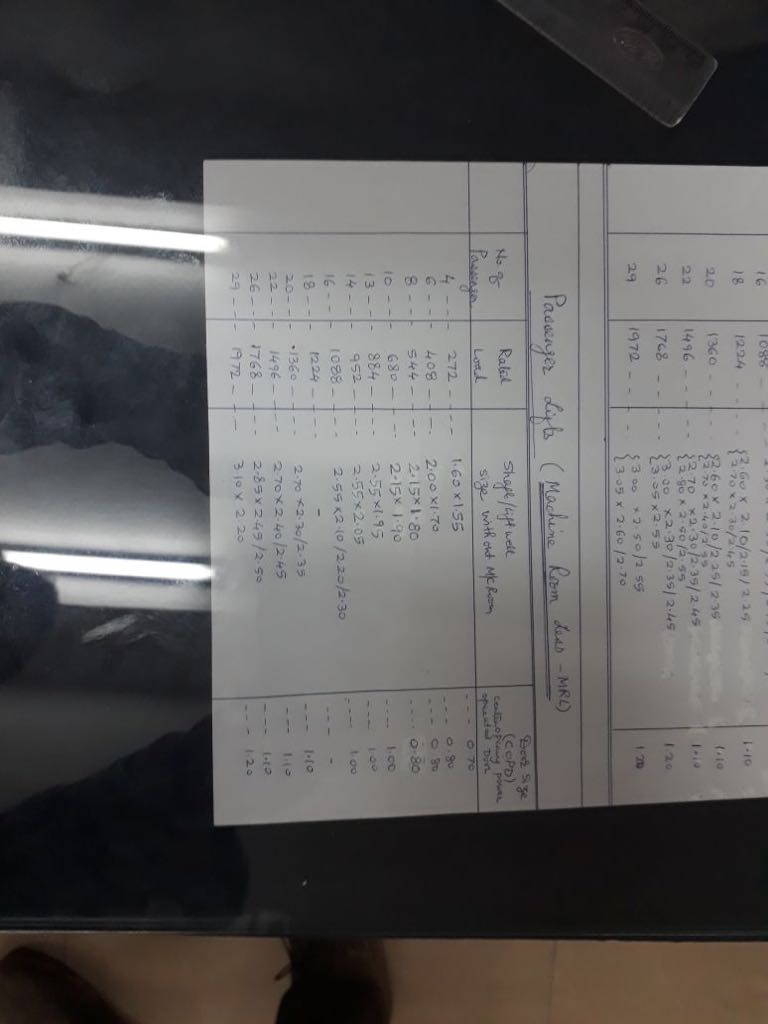 16 1088 ---
18 1224 -- {2.60 x 2.10/2.15/2.25 1.10
{2.70 x 2.30/2.45
20 1360 -- {2.60 x 2.10/2.25/2.35 1.10
{2.70 x 2.40/2.55
22 1496 -- -- {2.70 x 2.30/2.35/2.45 1.10
{2.80 x 2.50/2.55
26 1768 -- -- {3.00 x 2.30/2.35/2.45 1.20
{3.05 x 2.55
29 1972 -- -- {3.00 x 2.50/2.55 1.20
{3.05 x 2.60/2.70
Passenger Lifts (Machine Room Less - MRL)
No of Passenger
Rated Load
Shape/Lift well size without M/c Room
Door Size (COPD) centre opening power operated Door
4 --- 272 --- 1.60 x 1.55 --- 0.70
6 --- 408 --- 2.00 x 1.70 --- 0.80
8 --- 544 --- 2.15 x 1.80 --- 0.80
10 --- 680 --- 2.15 x 1.90 --- 0.80
13 --- 884 --- 2.55 x 1.95 --- 1.00
14 --- 952 --- 2.55 x 2.05 --- 1.00
16 --- 1088 --- 2.55 x 2.10/2.20/2.30 --- 1.00
18 --- 1224 --- - --- -
20 --- 1360 --- 2.70 x 2.30/2.35 --- 1.10
22 --- 1496 --- 2.70 x 2.40/2.45 --- 1.10
26 --- 1768 --- 2.85 x 2.45/2.50 --- 1.10
29 --- 1972 --- 3.10 x 2.20 --- 1.20